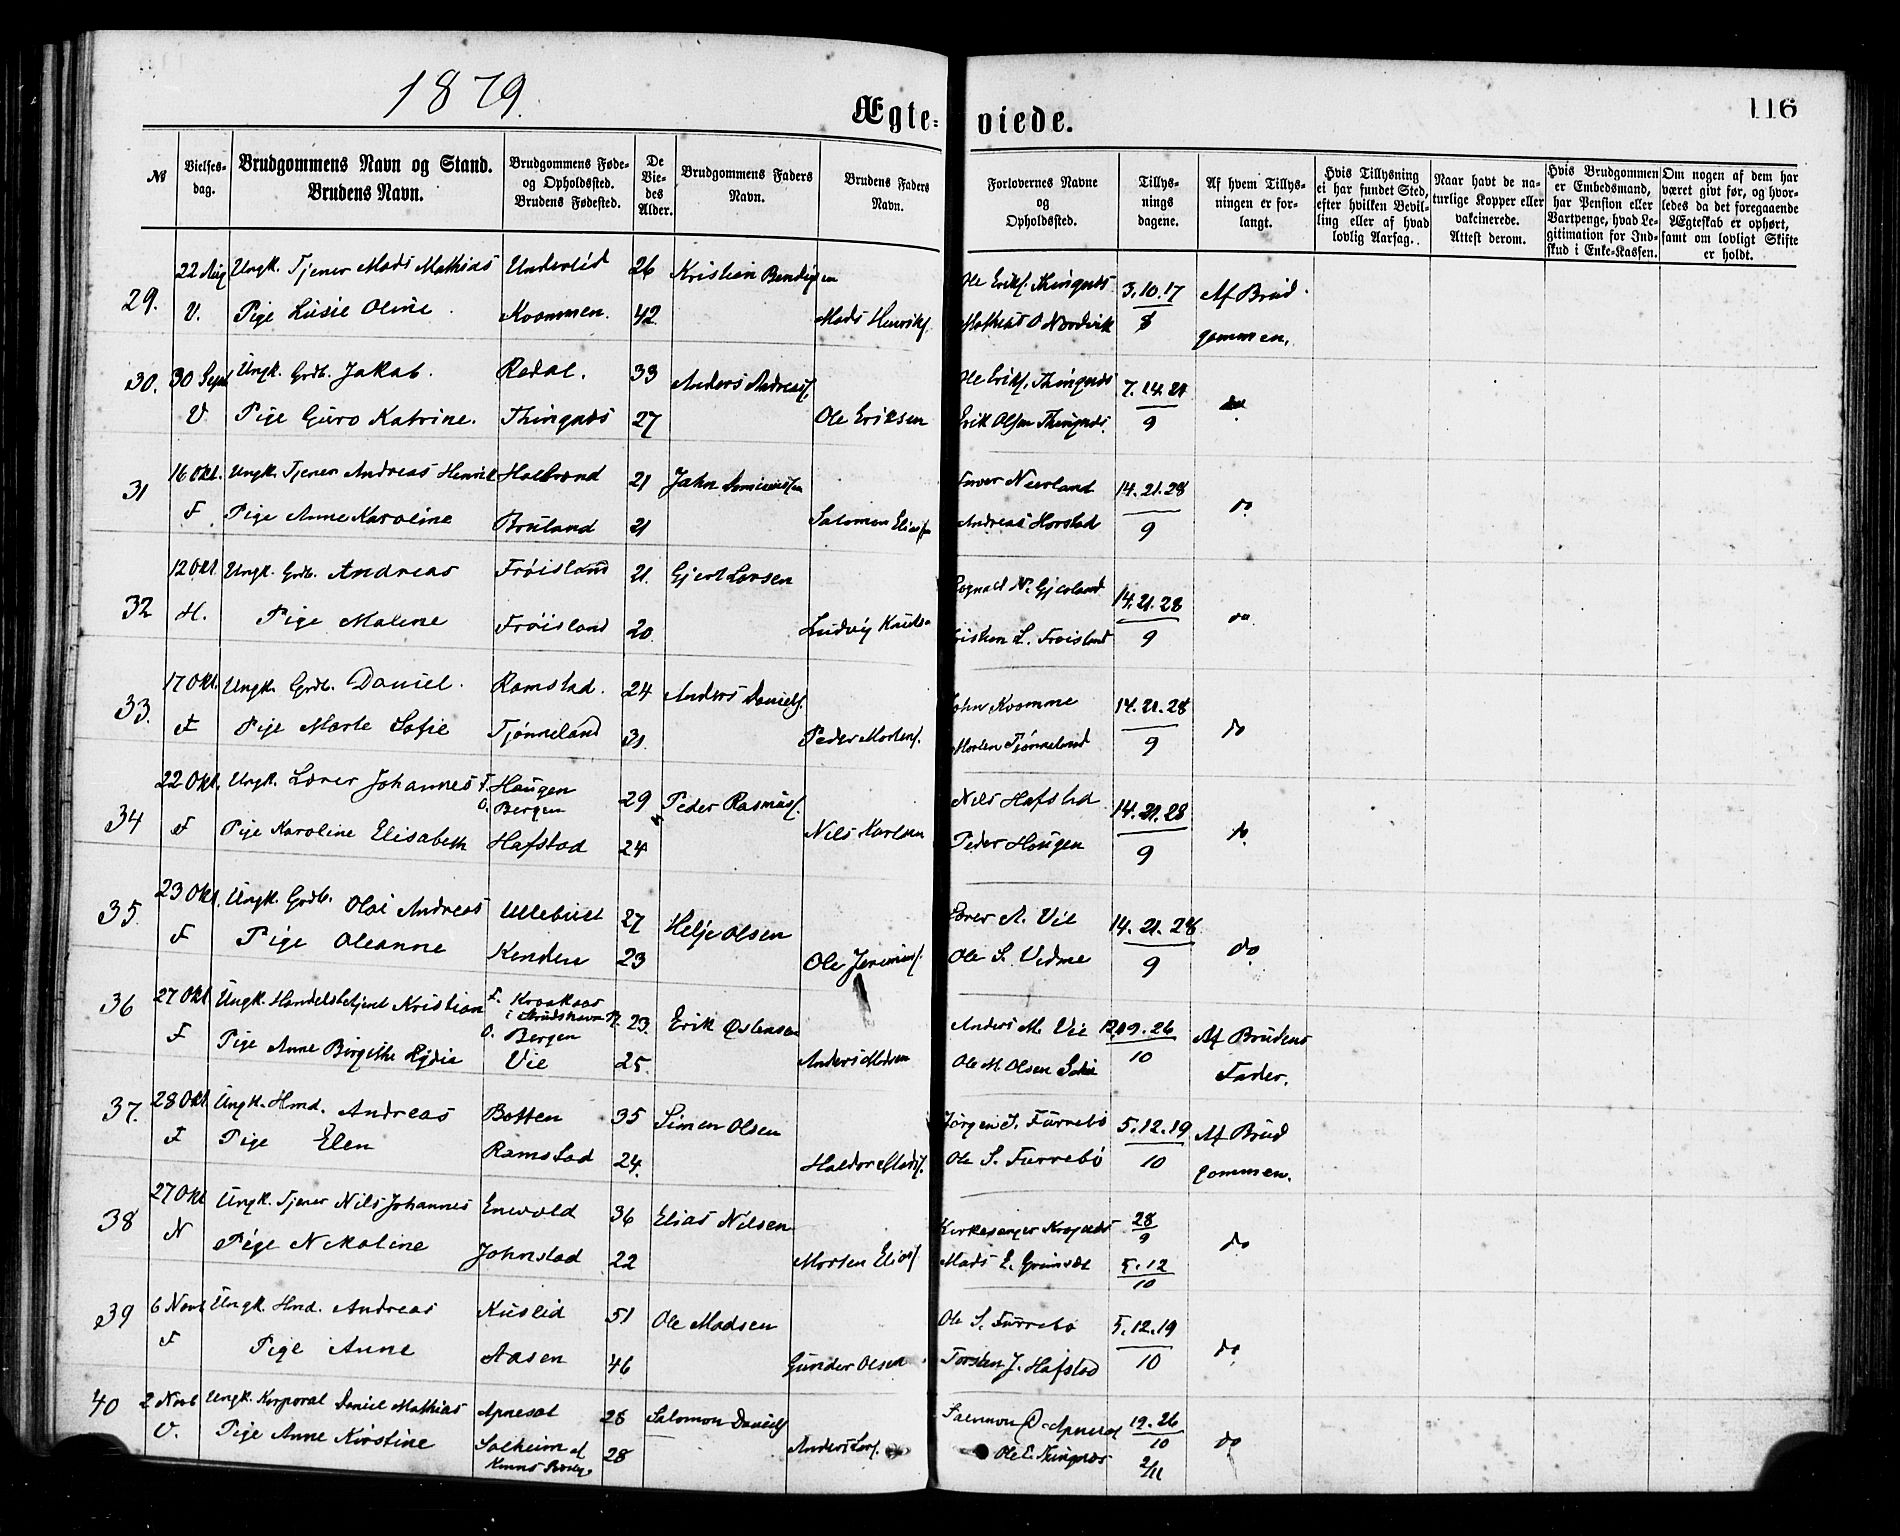 1879.
Ægteviede.
116
№
Vielsesdag.
Brudgommens Navn og Stand.
Brudens Navn.
Brudgommens Føde- og Opholdssted.
Brudens Fødested.
De Viedes Alder.
Brudgommens Faders Navn.
Brudens Faders Navn.
Forlovernes Navne og Opholdssted.
Tillysnings dagene.
Af hvem Tillysningen er forlangt.
Hvis Tillysning ei har fundet Sted, efter hvilken Bevilling eller af hvad lovlig Aarsag.
Naar havt de naturlige Kopper eller vakcinerede. Attest derom.
Hvis Brudgommen er Embedsmand, har Pension eller Vartpenge, hvad Legitimation for Indskud i Enke-Kassen.
Om nogen af dem har været givt før, og hvorledes da det foregaaende Ægteskab er ophørt, samt om lovligt Skifte er holdt.
29. 22 Aug Ungk. Tjener Mads Mathias Underlid 26 Kristian Bendigsen Ole Eriks. Thingnes 3.10.17 Af Brud
V. Pige Lusie Oline Kvammen. 42 Mads Henriks. Mathias O Nordvik 8 gommen.
30. 30 Sept Ungk. Grdb. Jakob. Redal. 33 Anders Andreas. Ole Eriks. Thingnæs 7.14.21 do
V. Pige Guro Katrine. Thingnæs 27 Ole Eriksen Erik Olsen Thingnæs. 9
31 16 Okt. Ungk. Tjener Andreas Henrik Halbrand 21 14.21.28 do
F. Pige Anne Karoline Bruland 21 Salomon Eliass Andreas Horstad 9
32 12 Okt. Ungk. Grdb. Andreas Frøisland 21. Gjert Larsen 14.21.28 do
H. Pige Malene Frøisland 20. Ludvig Knuds. Kristen L. Frøisland 9
33. 17 Okt. Ungk. Grdb. Daniel. Ramstad. 24 Anders Daniels. John Kvamme 14.21.28 do
F Pige Marte Sofie Tjønneland 31. Peder Mortens. Morten Tjønneland 9
34 22 Okt. Ungk. Lærer Johannes F. Haugen O. Bergen 29 Peder Rasmus. Nils Hafstad 14.21.28 do
F Pige Karoline Elisabeth Hafstad 24 Nils Karlsen Peder Haugen 9
35 23 Okt. Ungk. Grdb. Olai Andreas Ullebust 27 Helje Olsen Lærer A. Vie 14.21.28 do
F Pige Oleanne 23 Ole Jeremias. Ole S. Vedme 9
36 27 Okt Ungk. Handelsbetjent Kristian F. O. Bergen 23. Erik Østensen Anders M. Vie 19.26 Af Brudens
F Pige Anne Birgithe Lydia Vie 25. Anders Madsen Ole M Olsen 10 Fader.
37. 28 Okt. Ungk. Hmd. Andreas Botten 35 Simen Olsen Jørgen S. Furrebø 5.12.19 Af Brud
F Pige Elen Ramstad 24. Haldor Mads. Ole S. Furrebø 10 gommen.
38 27 Okt Ungk. Tjener Nils Johannes Enevold 36 Elias Nilsen Kirkesanger 28/9 do
N Pige Nikoline Johnstad 22 Morten Elias. Mads E. Grimset 5.12/10
39 6 Novb Ungk. Hmd. Andreas Kuslid 51 Ole Madsen Ole S. Furrebø 5.12.19 do
F Pige Anne Aasen 46 Gunder Olsen Torsten J. Hafstad 10
40 2 Novb Ungk. Korporal Daniel Mathias Apnesæt 28 Salomon Daniels D. Apneset 19.26/10 do
V. Pige Anne Kirstine Solheim af Kinns 28 Anders Lars. Ole E. Thingnæs 2/11